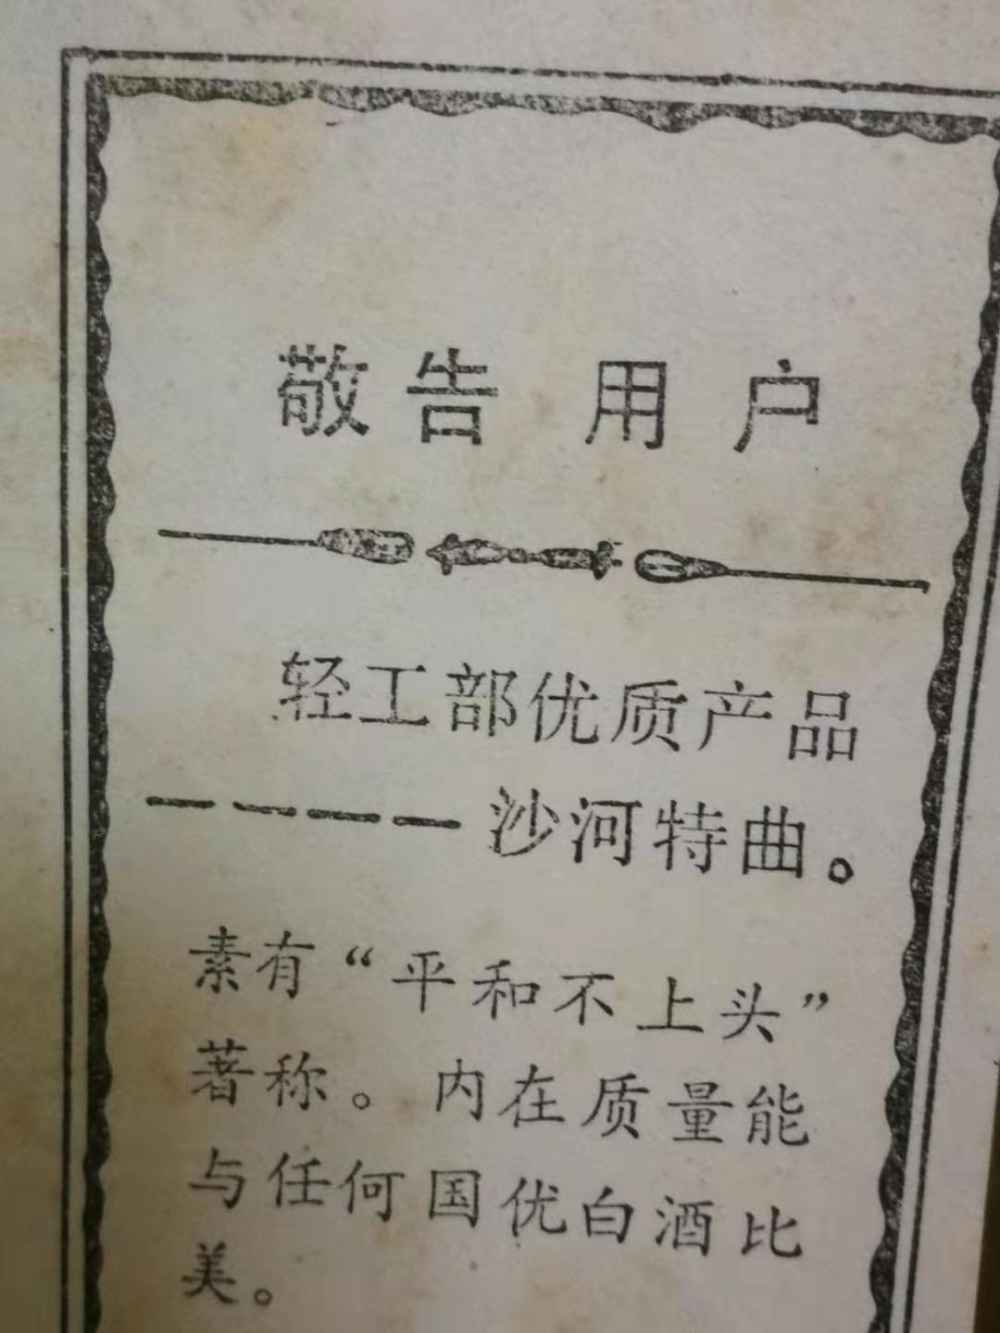 敬告用户
轻工部优质产品
————沙河特曲。
素有“平和不上头”
著称。内在质量能
与任何国优白酒比
美。